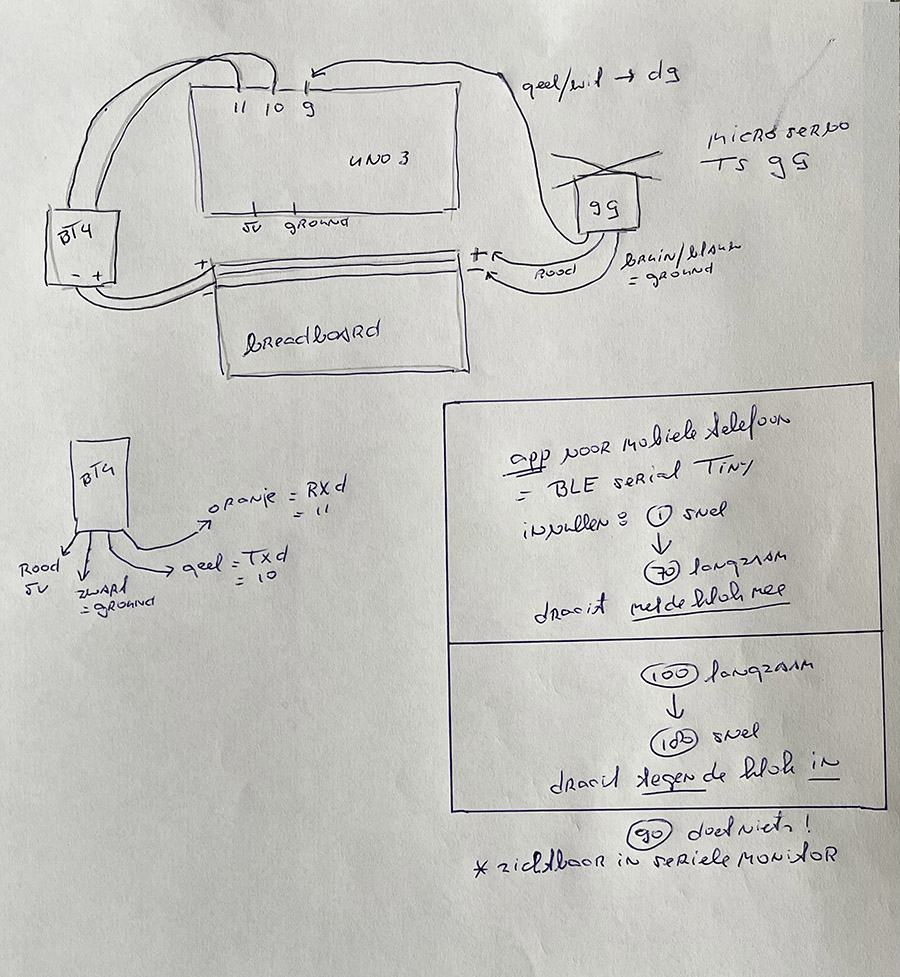 11 10 9
geel/wit → d9
UNO 3
MICRO SERVO
TS 9G
BT4
- +
5V GROUND
9G
+
-
+
-
ROOD
BRUIN/
= GROUND
BREADBOARD
BT4
ORANJE = RXd
= 11
geel = TXd
= 10
ROOD
5V
ZWART
= GROUND
app VOOR Mobiele telefoon
= BLE SERIAL TINY
invullen : 1 snel
↓
70 langzaam
draait met de klok mee
100 langzaam
↓
180 snel
draait tegen de klok in
90 doet niets!
* zichtbaar in seriele MONITOR